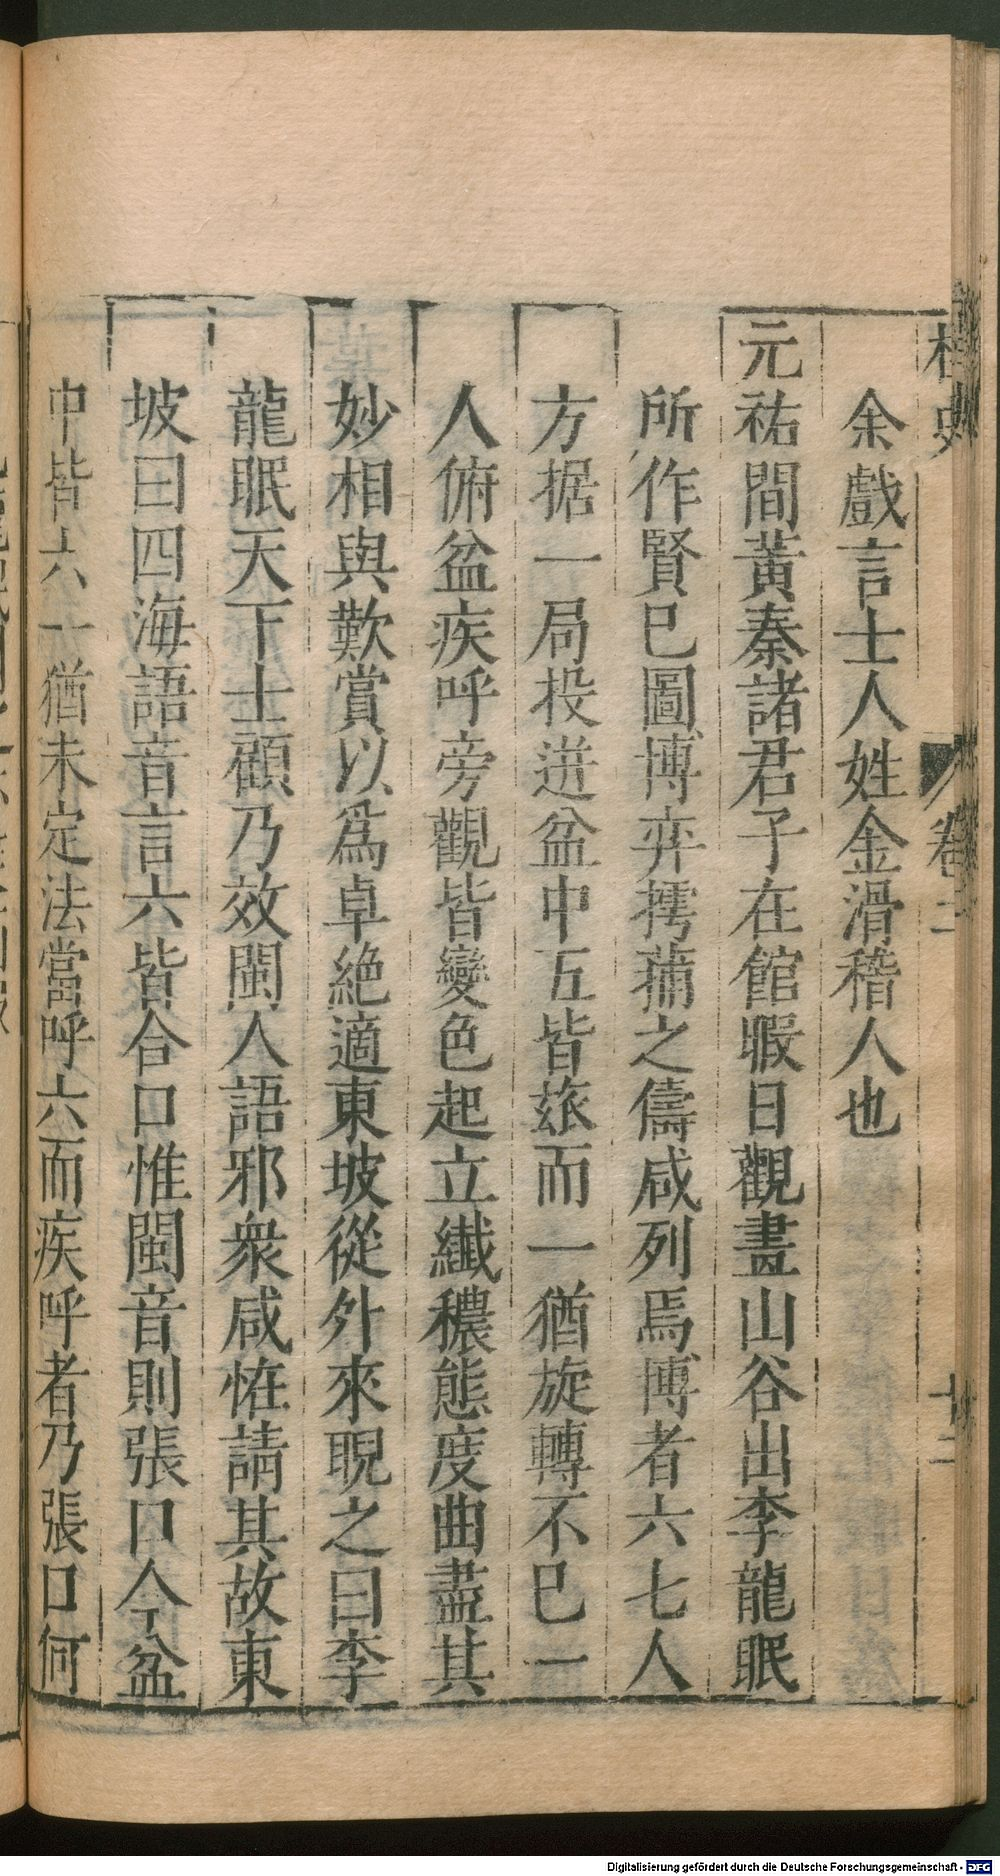 桯史
卷二
廿二
余戲言士人姓金滑稽人也
元祐間黃秦諸君子在館暇日觀畫山谷出李龍眠
所作賢已圖博弈摴蒱之儔咸列焉博者六七人
方据一局投迸盆中五皆𤣱而一猶旋轉不已一
人俯盆疾呼旁觀皆變色起立纖穠態度曲盡其
妙相與歎賞以爲卓絕適東坡從外來睨之曰李
龍眠天下士顧乃效閩人語邪衆咸恠請其故東
坡曰四海語音言六皆合口惟閩音則張口今盆
中皆六一猶未定法當呼六而疾呼者乃張口何
Digitalisierung gefördert durch die Deutsche Forschungsgemeinschaft - DFG